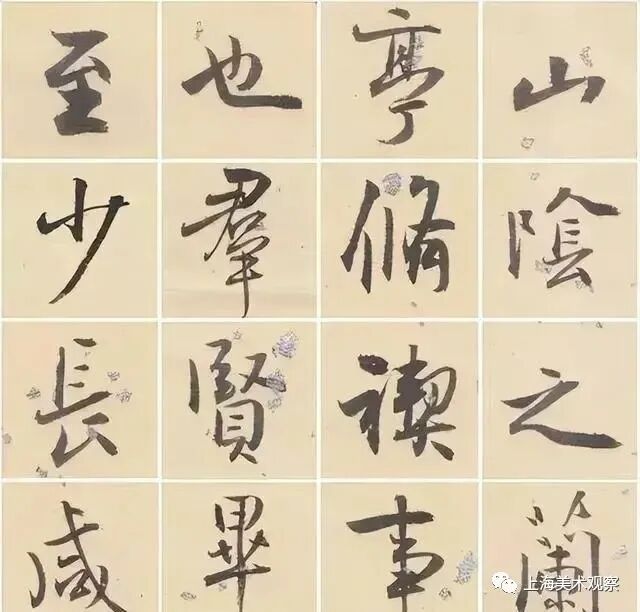 山陰之蘭
亭脩禊事
也羣賢畢
至少長咸
上海美术观察